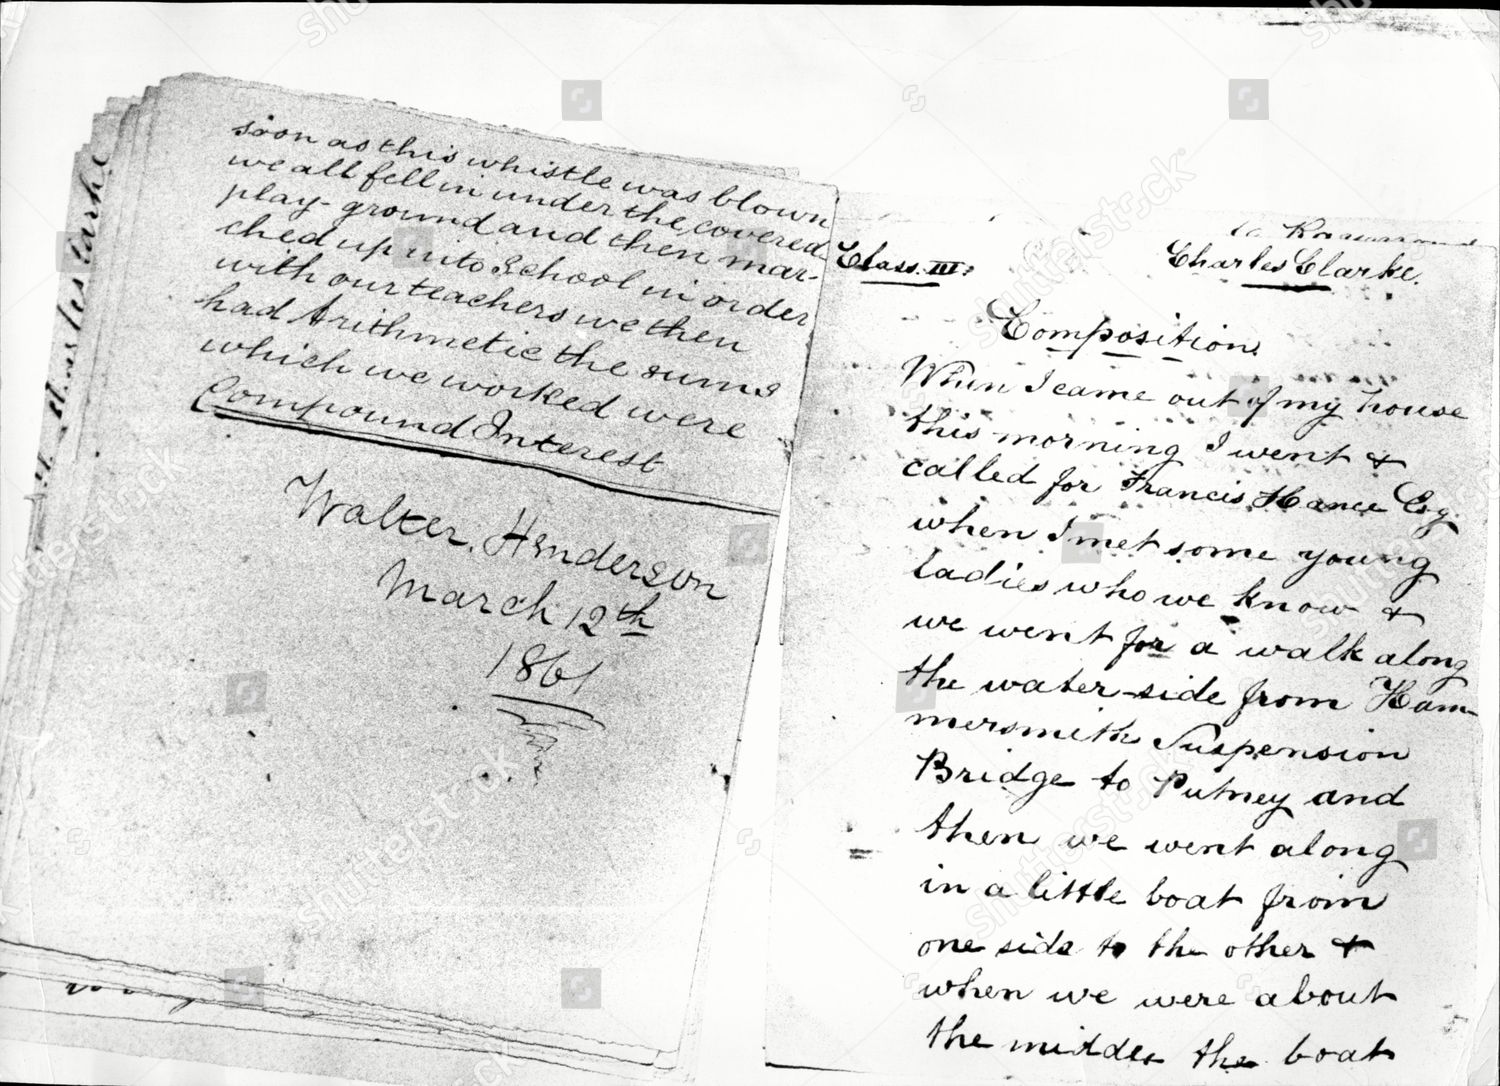 soon as this whistle was blown
we all fell in under the covered
play-ground and then mar-
ched up into School in order
with our teachers we then
had Arithmetic the sums
which we worked were
Compound Interest
Walter. Henderson
March 12th
1861
Class. III.
Charles Clarke.
Composition.
When I came out of my house
this morning I went &
called for Francis Hance Esq.
when I met some young
ladies who we know &
we went for a walk along
the water-side from Ham-
mersmith Suspension
Bridge to Putney and
then we went along
in a little boat from
one side to the other &
when we were about
the middle the boat